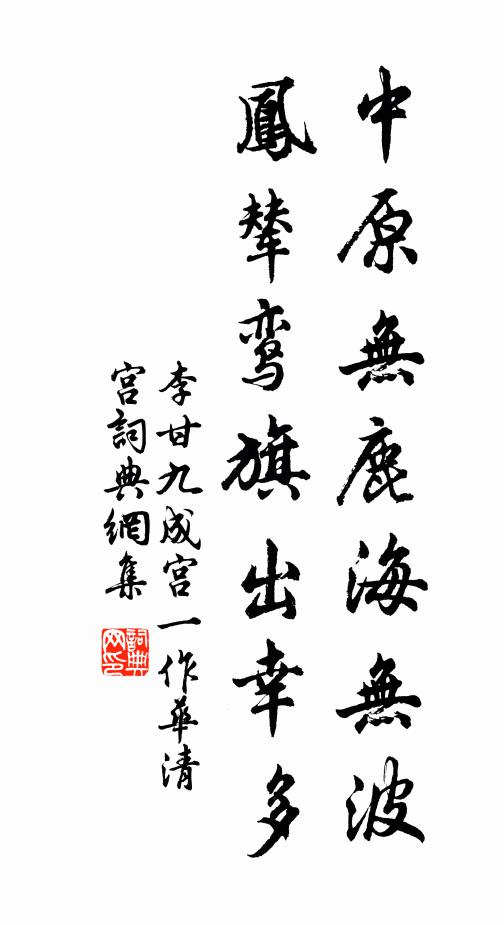 中原無鹿海無波
鳳輦鸾旗出幸多
李甘九成宫一作華清
宫詞典網集
詞典网印